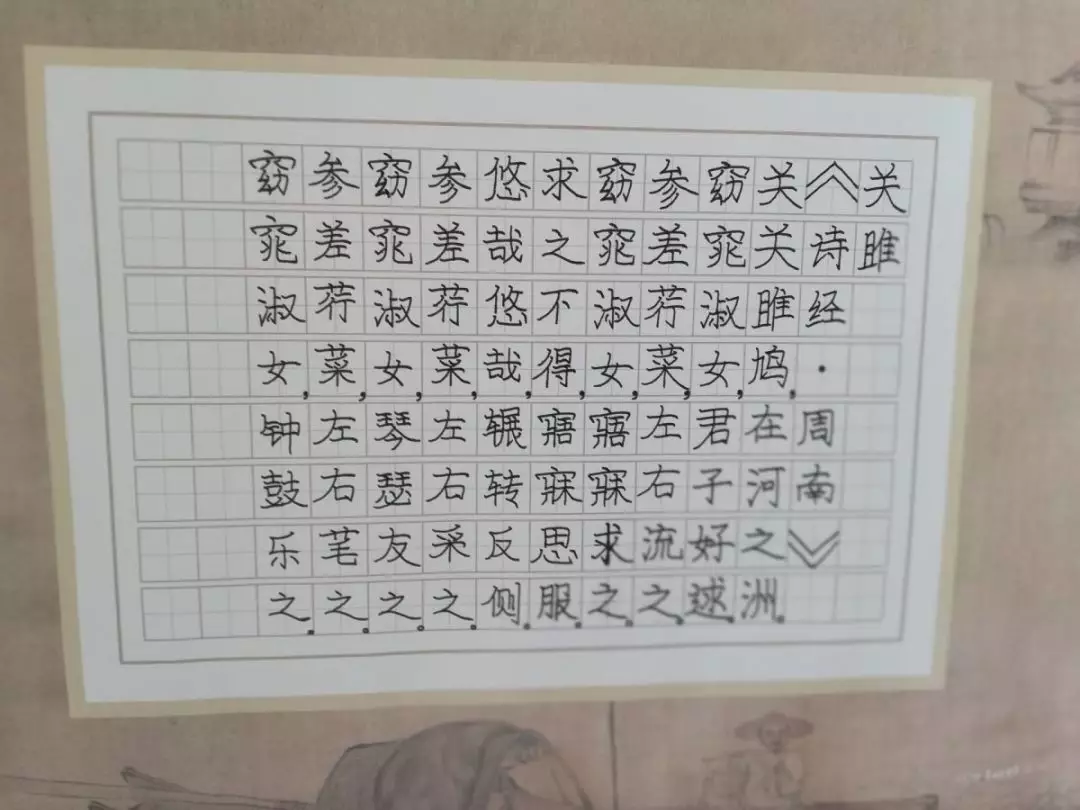 关雎
《诗经·周南》
关关雎鸠,在河之洲。
窈窕淑女,君子好逑。
参差荇菜,左右流之。
窈窕淑女,寤寐求之。
求之不得,寤寐思服。
悠哉悠哉,辗转反侧。
参差荇菜,左右采之。
窈窕淑女,琴瑟友之。
参差荇菜,左右芼之。
窈窕淑女,钟鼓乐之。